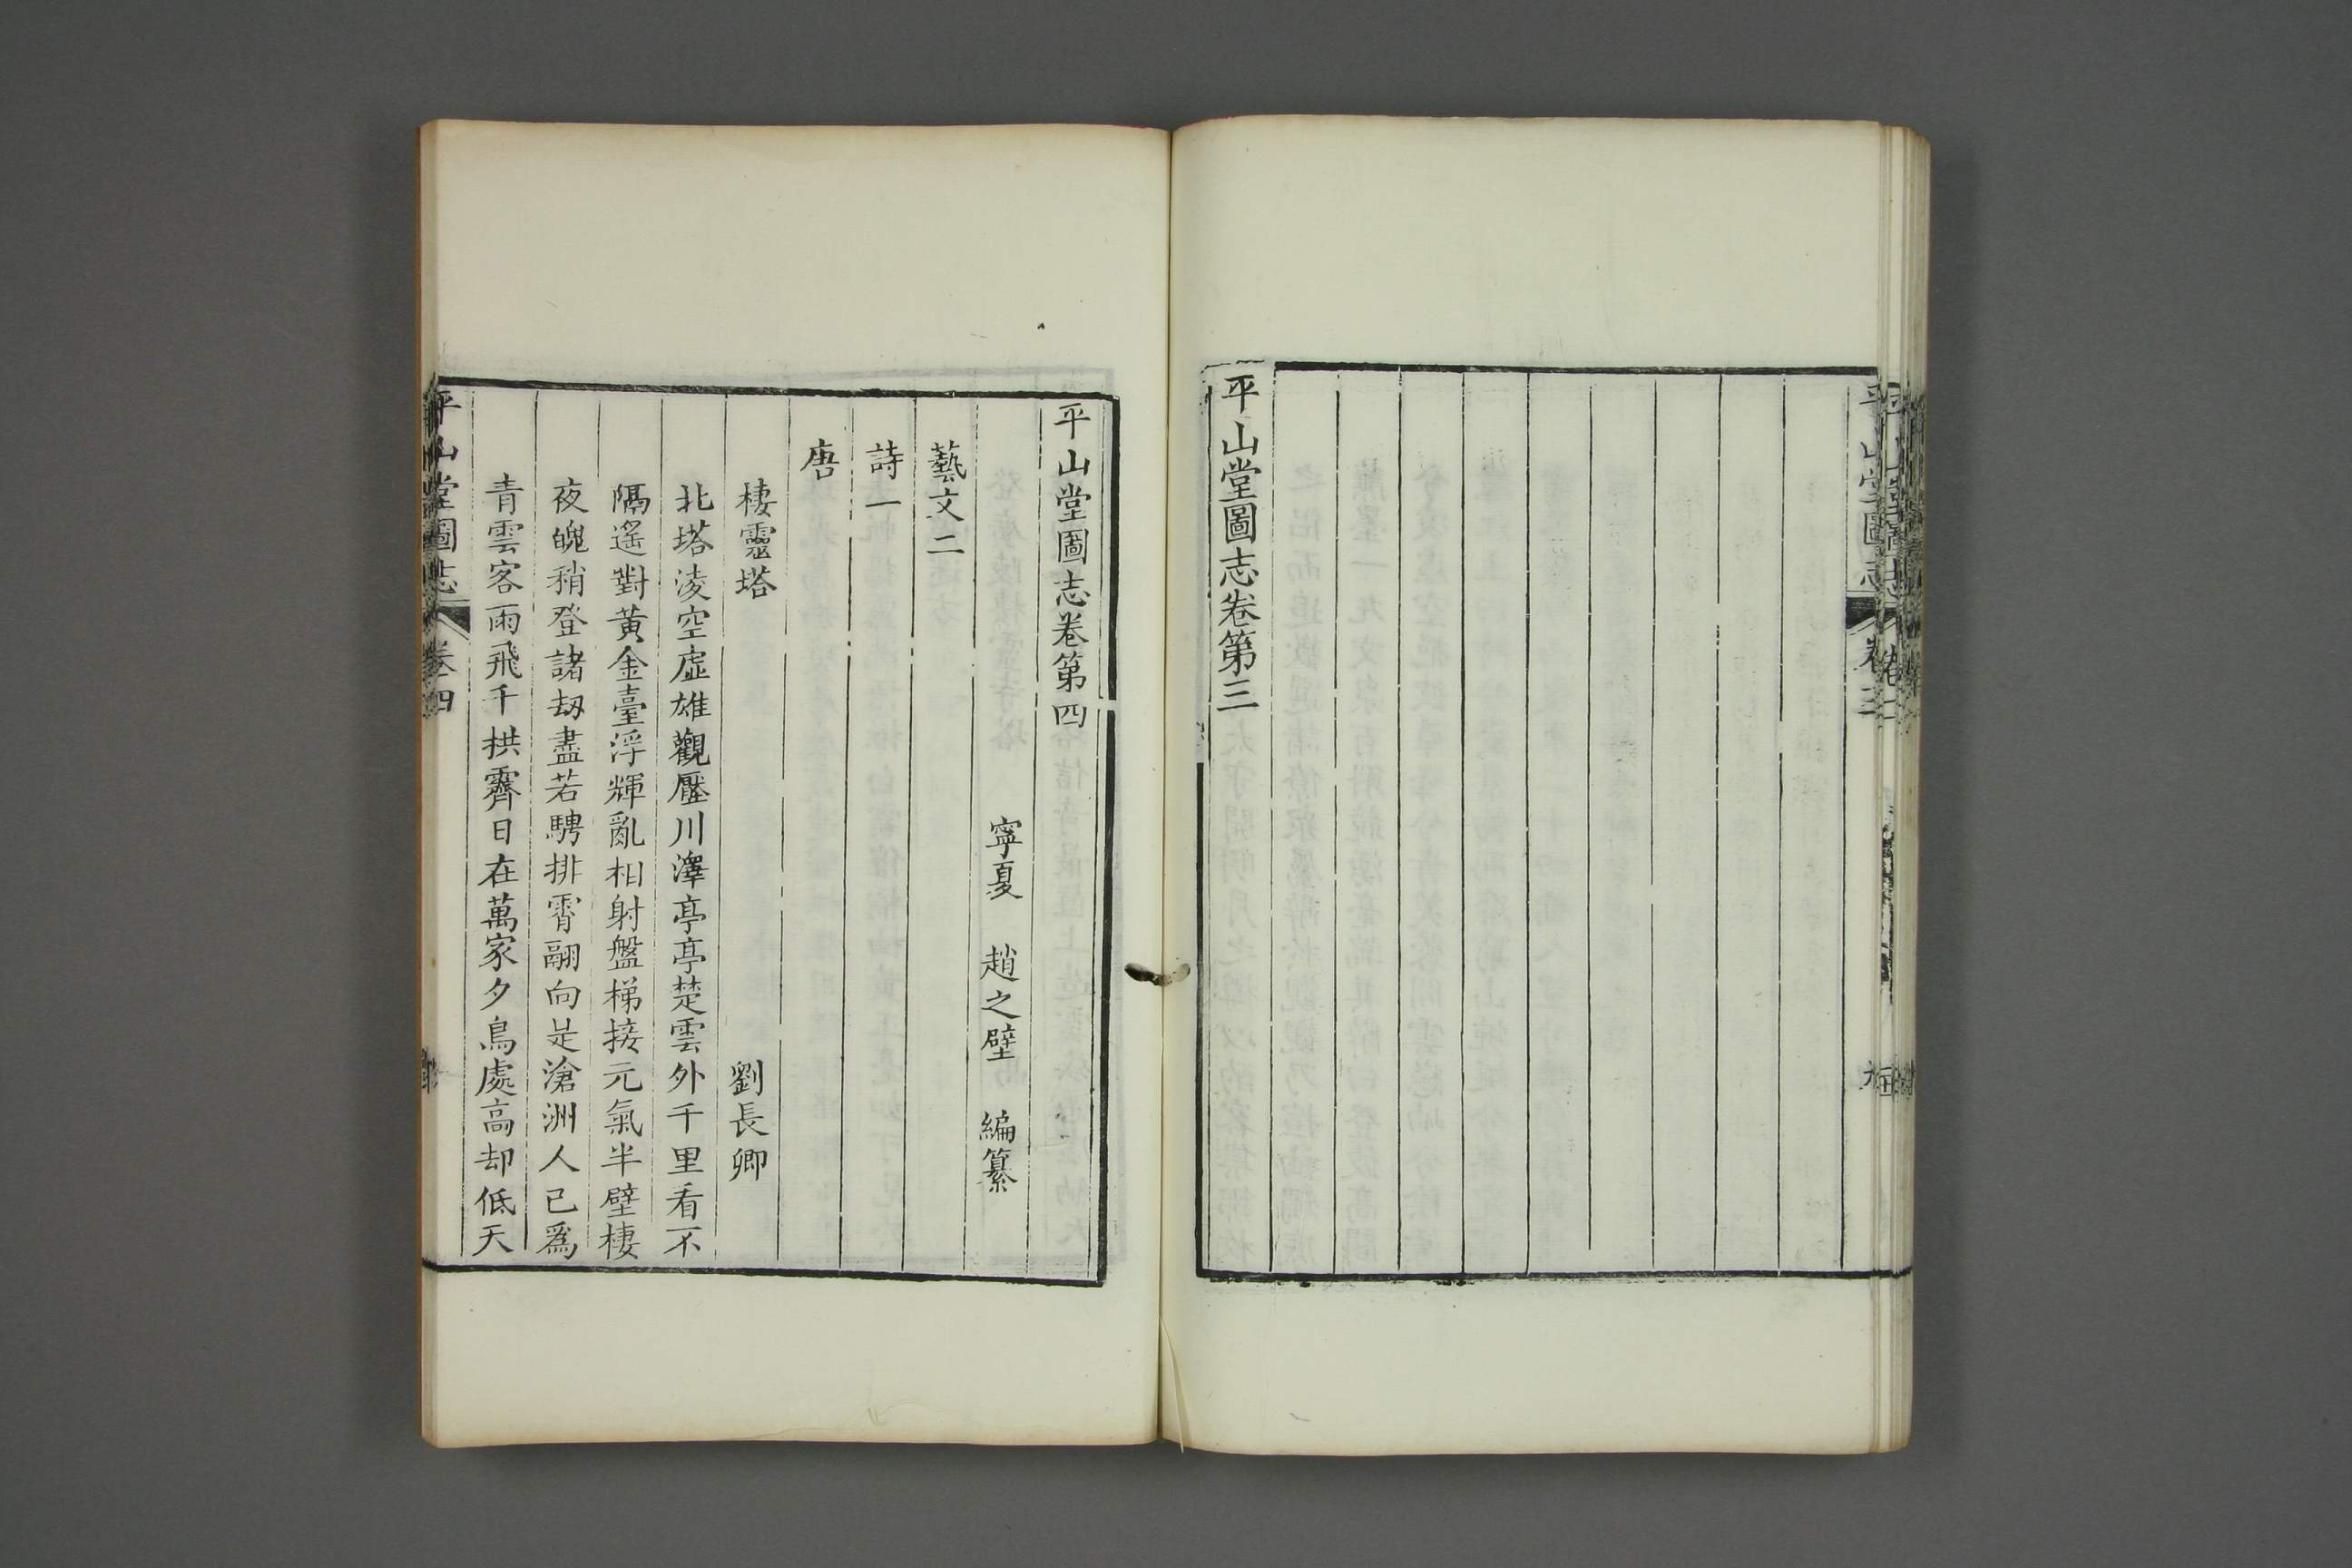 平山堂圖志卷第三
平山堂圖志卷第四
寧夏 趙之壁 編纂
藝文二
詩一
唐
棲靈塔 劉長卿
北塔淩空虛雄觀壓川澤亭亭楚雲外千里看不
隔遙對黃金臺浮輝亂相射盤梯接元氣半壁棲
夜魄稍登諸刼盡若騁排霄翮向是滄洲人已爲
青雲客雨飛千拱霽日在萬家夕鳥處高却低天
平山堂圖志 卷四